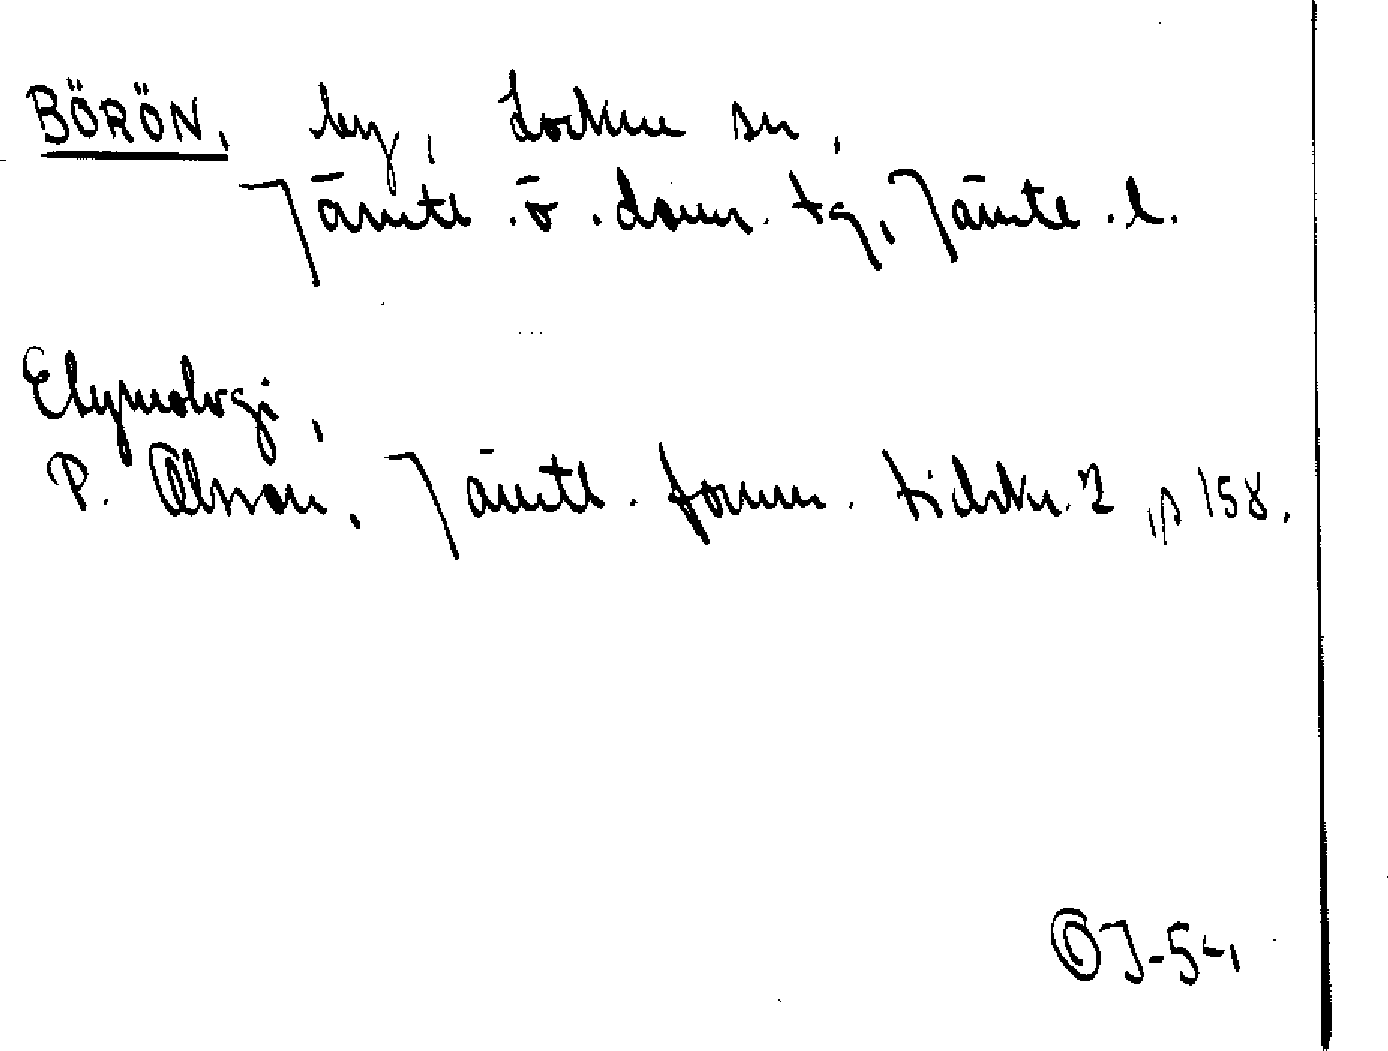 BÖRÖN, by, Lockne sn,
Jämtl. ö. doms. tg, Jämtl. l.
Etymologi,
P. Olsson, Jämtl. fornm. tidskr. 2, s 158.
OJ-54